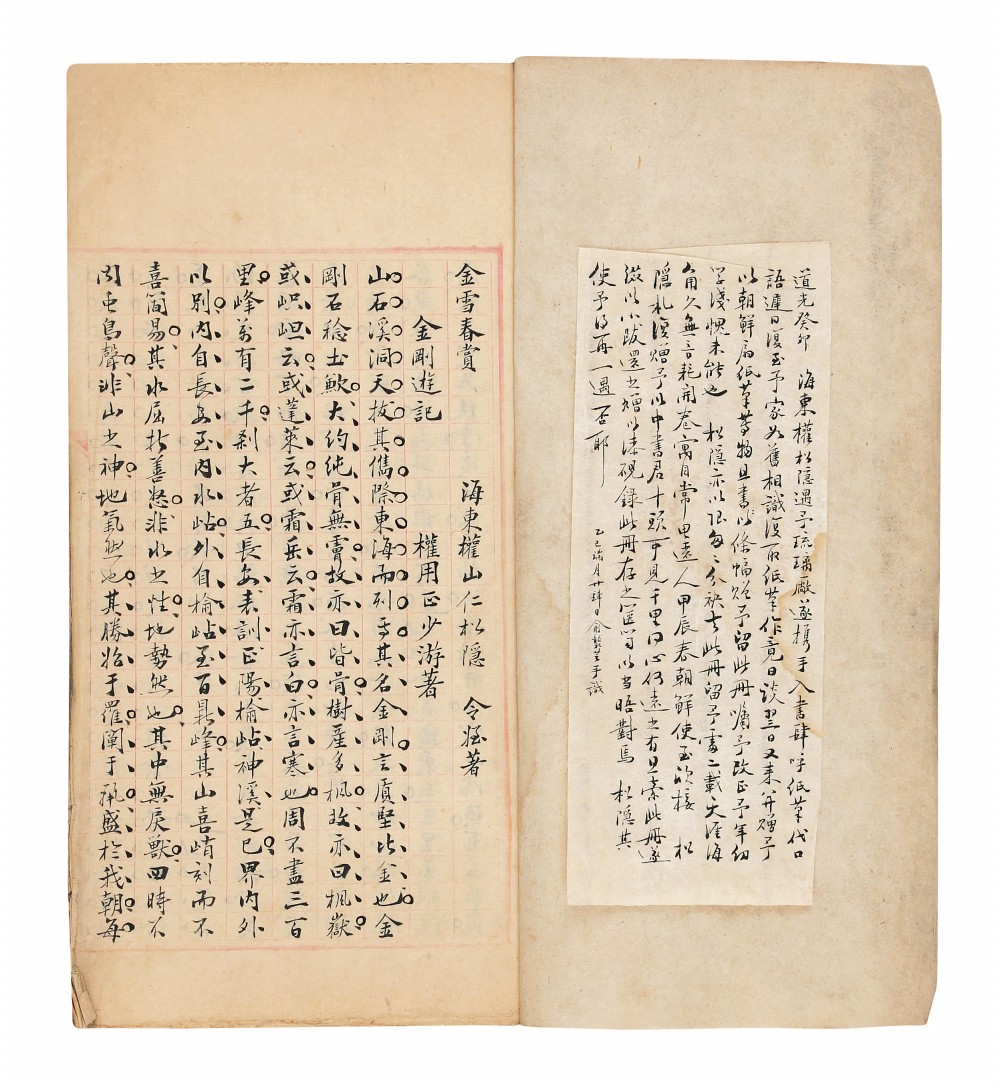 道光癸卯 海東權松隱遇予琉璃廠遂携手入書肆呼紙筆代口
語遲日復至予家如舊相識復取紙筆作竟日談翌日又来并贈予
以朝鮮扇紙筆等物且書以條幅贈予留此冊囑予改正予年幼
学淺愧未能也 松隱亦以限匆々分袂去此冊留予處二載天涯海
角久無音耗開卷寓目常思遠人甲辰春朝鮮使至欣接 松
隱札復贈予以中書君十頭可見千里同心何遠之有且索此冊遂
綴以小跋還之贈以漆硯錄此冊存之篋笥以當晤對焉 松隱其
使予得再一遇否耶
乙巳 月廿肆日俞 手識
金雪春賞 海東權山仁松隱 令 著
金剛遊記 權用正少游著
山石溪洞天拔其儁際東海而列焉其名金剛言質堅比金也金
剛石稔土歉大約純骨無膚故亦曰皆骨樹産多楓故亦曰楓嶽
或岘岠云或蓬萊云或霜岳云霜亦言白亦言寒也周不盡三百
里峰萬有二千刹大者五長安表訓正陽榆岾神溪是已界内外
以別内自長安至内水岾外自榆岾至百鼎峰其山喜峭刻而不
喜簡易其水屈折善怒非水之性地勢然也其中無戾獸四時不
聞屯鳥聲非山之神地氣然也其勝始于羅闡于麗盛於我朝每